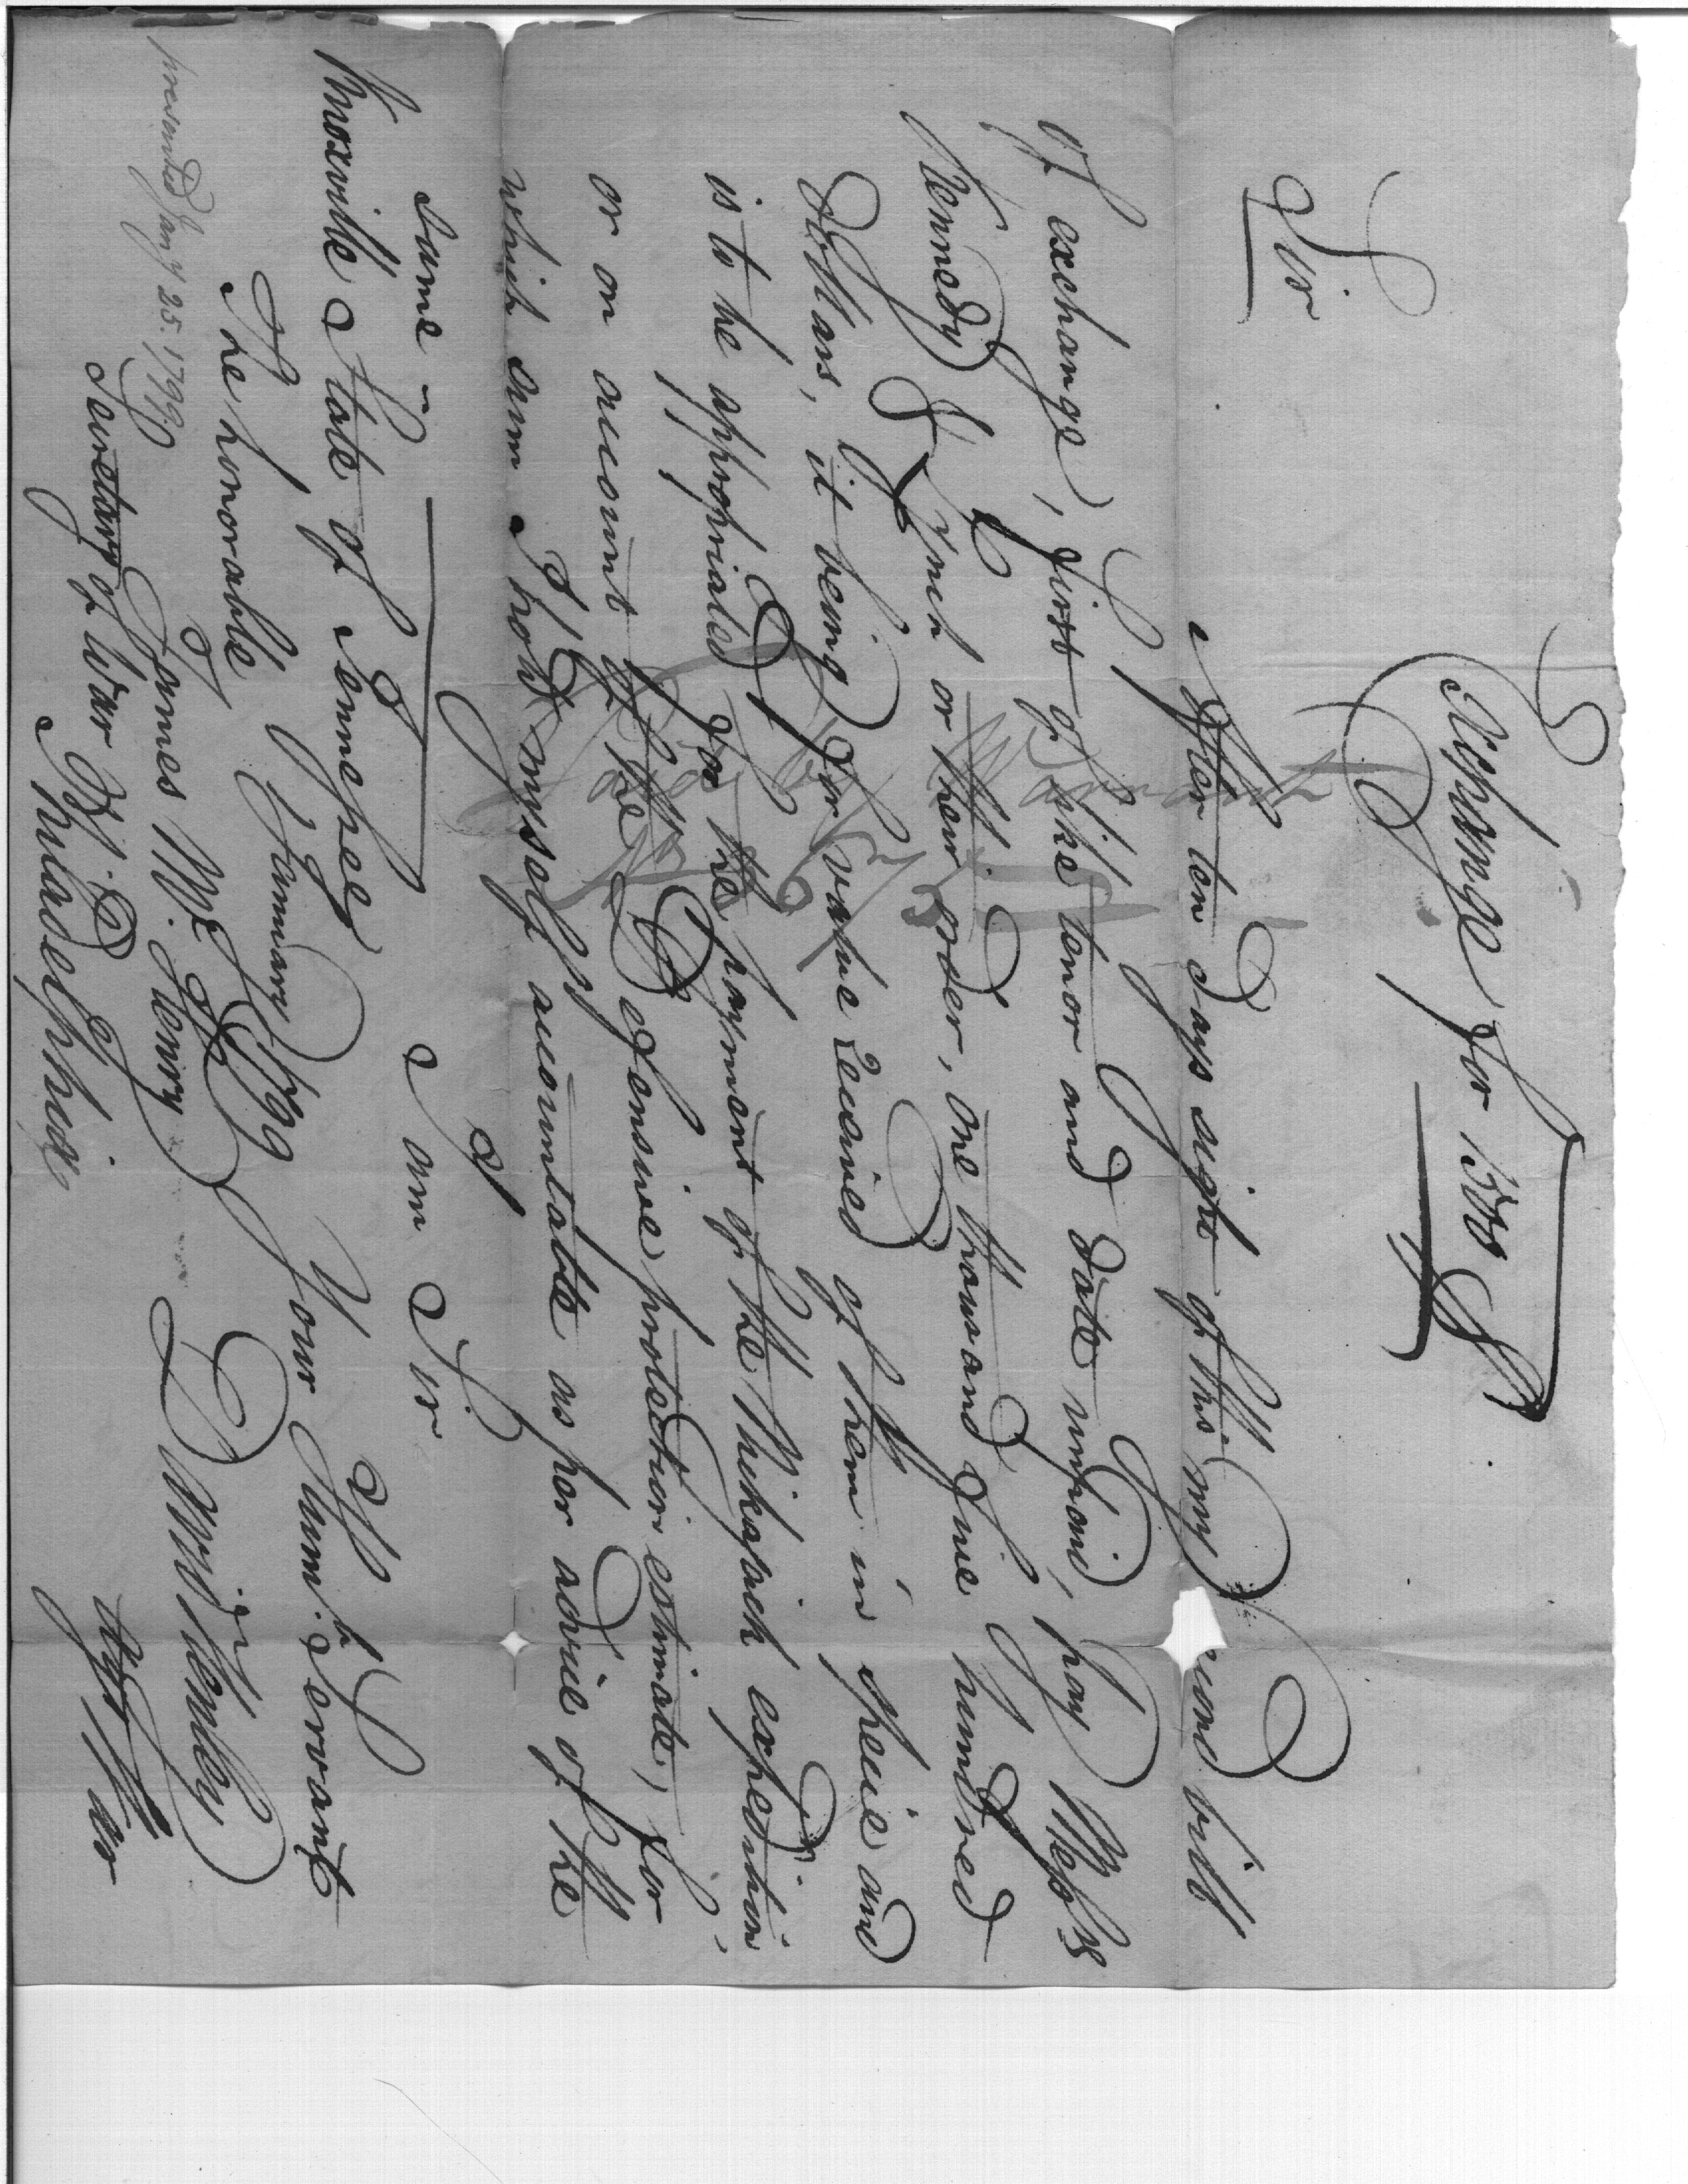 Exchange for 1500 Ds
Sir
After ten days sight of this my second bill
of exchange, first of like tenor and date unpaid, pay Messrs
Kennedy & Lynch or their order, one thousand five hundred
dollars, it being for value received of them in specie and
is to be appropriated for the payment of the Chikasaick expedition
or on account of the Defensive protection estimate, for
which sum I hold myself accountable as per advice of the
same -
I am Sir
Knoxville State of Tennessee January 1799
Your Humb. Servant
The honorable
James McHenry
Secretary of War
Philadelphia
D W Henley
Agt War
presented Jany 25. 1799.
Warrant